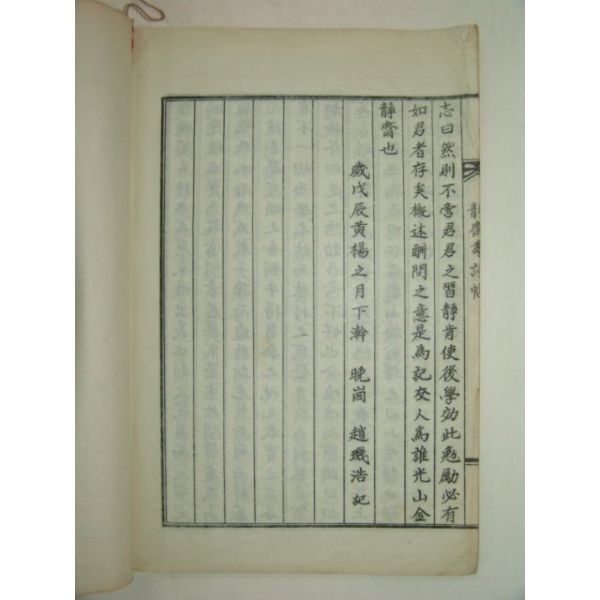 志曰然則不啻君君之習靜肯使後學効此勉勵必有
如君者存矣概述酬問之意是為記友人為誰光山金
靜齋也
歲戊辰黃楊之月下澣 晩崗 趙璣浩 記